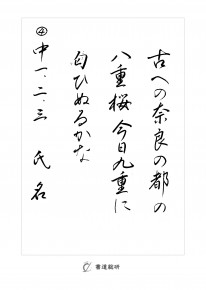 古への奈良の都の
八重桜今日九重に
匂ひぬるかな
④中一、二、三 氏名
書道競研